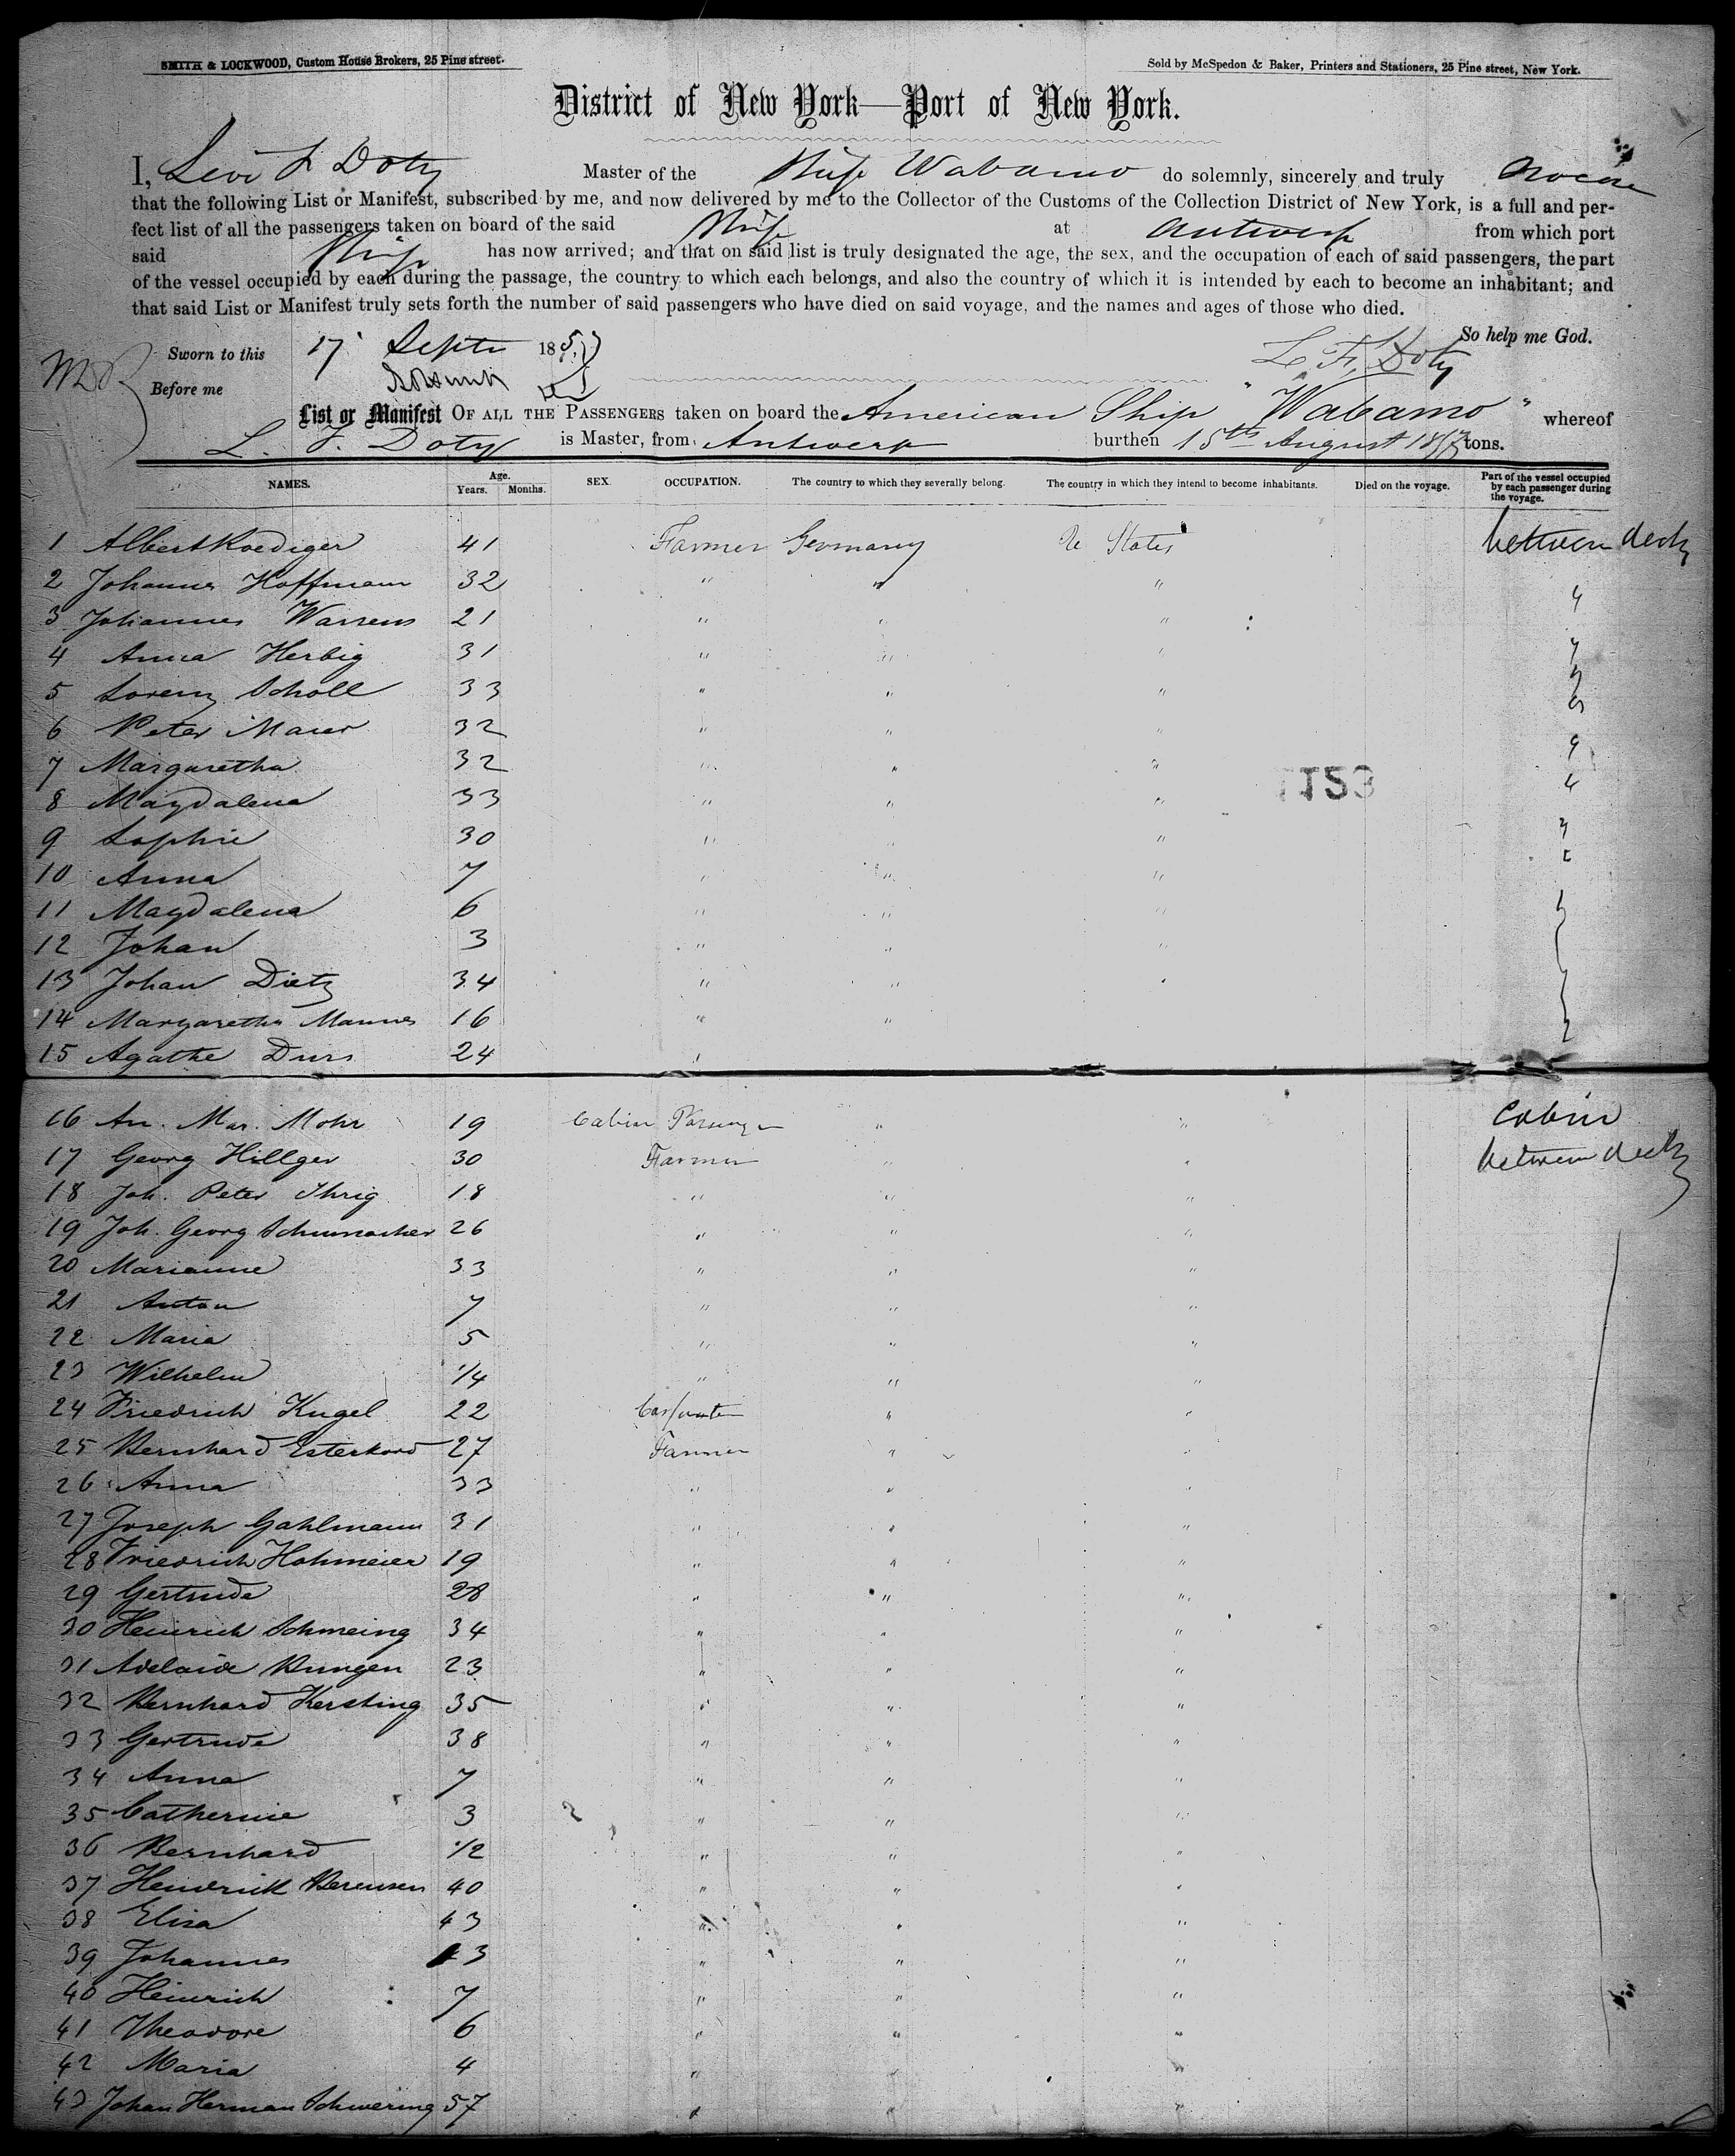 SMITH & LOCKWOOD, Custom House Brokers, 25 Pine street.
Sold by McSpedon & Baker, Printers and Stationers, 25 Pine street, New York.
District of New York—Port of New York.
I, Levi F Doty Master of the Ship Wabamo do solemnly, sincerely and truly
that the following List or Manifest, subscribed by me, and now delivered by me to the Collector of the Customs of the Collection District of New York, is a full and per-
fect list of all the passengers taken on board of the said Ship at Antwerp from which port
said Ship has now arrived; and that on said list is truly designated the age, the sex, and the occupation of each of said passengers, the part
of the vessel occupied by each during the passage, the country to which each belongs, and also the country of which it is intended by each to become an inhabitant; and
that said List or Manifest truly sets forth the number of said passengers who have died on said voyage, and the names and ages of those who died.
So help me God.
Sworn to this 17 Septr 1857
L. F. Doty
Before me
List or Manifest OF ALL THE PASSENGERS taken on board the American Ship "Wabamo" whereof
L. F. Doty is Master, from Antwerp burthen 15th August 1857 tons.
NAMES. Age. Years. Months. SEX. OCCUPATION. The country to which they severally belong. The country in which they intend to become inhabitants. Died on the voyage. Part of the vessel occupied by each passenger during the voyage.
1 Albert Roediger 41 Farmer Germany U States between deck
2 Johannes Hoffmann 32 " " "
3 Johannes Warrens 21 " " "
4 Anna Herbig 31 " " "
5 Lorenz Scholl 33 " " "
6 Peter Maier 32 " " "
7 Margaretha 32 " " "
1153
8 Magdalena 33 " " "
9 Sophie 30 " " "
10 Anna 7 " " "
11 Magdalena 6 " " "
12 Johan 3 " " "
13 Johan Dietz 34 " " "
14 Margaretha Mannes 16 " "
15 Agathe Durs 24 "
16 An. Mar. Mohr 19 Cabin Passenger " " Cabin
17 Georg Hillger 30 Farmer " " between deck
18 Joh. Peter Ihrig 18 " " "
19 Joh. Georg Schumacher 26 " " "
20 Marianne 33 " " "
21 Anton 7 " " "
22 Maria 5 " " "
23 Wilhelm 1/4 " " "
24 Friedrich Kugel 22 Carpenter " "
25 Bernhard Esterkord 27 Farmer " "
26 Anna 33 " " "
27 Joseph Gahlmann 31 " " "
28 Friedrich Hohmeier 19 " " "
29 Gertrude 28 " " "
30 Heinrich Schmeing 34 " " "
31 Adelaide Bungen 23 " " "
32 Bernhard Kersting 35 " " "
33 Gertrude 38 " " "
34 Anna 7 " " "
35 Catherine 3 " " "
36 Bernhard 1/2 " " "
37 Hendrick Berensen 40 " " "
38 Elisa 43 " " "
39 Johannes 13 " " "
40 Heinrich 7 " " "
41 Theodore 6 " " "
42 Maria 4 " " "
43 Johan Herman Schwering 57 " " "